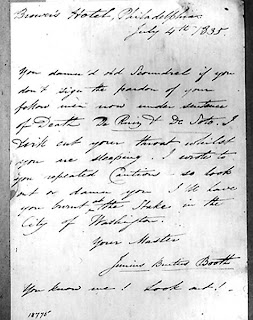 Brower's Hotel, Philadelphia
July 4th 1835.
You damn'd old Scoundrel if you
don't sign the pardon of your
fellow men now under sentence
of Death De Ruiz & De Soto, I
will cut your throat whilst
you are sleeping. I wrote to
you repeated Cautions so look
out or damn you I'll have
you burnt at the Stake in the
City of Washington.
Your Master
Junius Brutus Booth
You know me! Look out!
18775